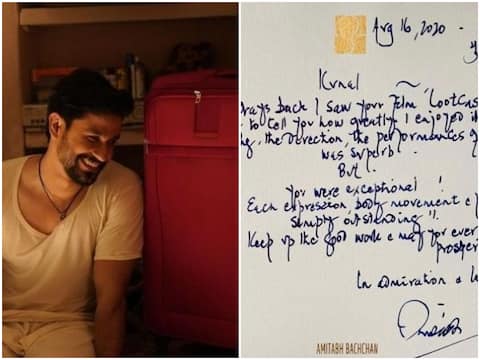 Aug 16, 2020
Kunal
days back I saw your Film 'Lootcase
to tell you how greatly I enjoyed it
the direction, the performances
was superb.
But .
You were exceptional !
Each expression, body movement
simply outstanding !!
Keep up the good work & may you ever
prosper
In admiration &
AMITABH BACHCHAN